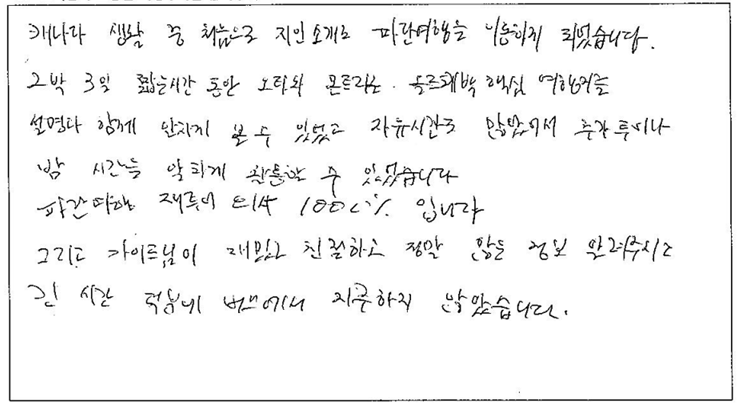 캐나다 생활 중 처음으로 지인소개로 파란여행을 이용하게 되었습니다.
2박 3일 짧은시간 동안 오타와 몬트리올 퀘백 핵심 여행지를
설명과 함께 알차게 볼 수 있었고 자유시간도 많았어서 추가 투어나
밤 시간을 알차게 활용할 수 있었습니다
파란여행 재투어 의사 1000% 입니다
그리고 가이드님이 재밌고 친절하고 정말 많은 정보 알려주시고
긴 시간 덕분에 버스에서 지루하지 않았습니다.